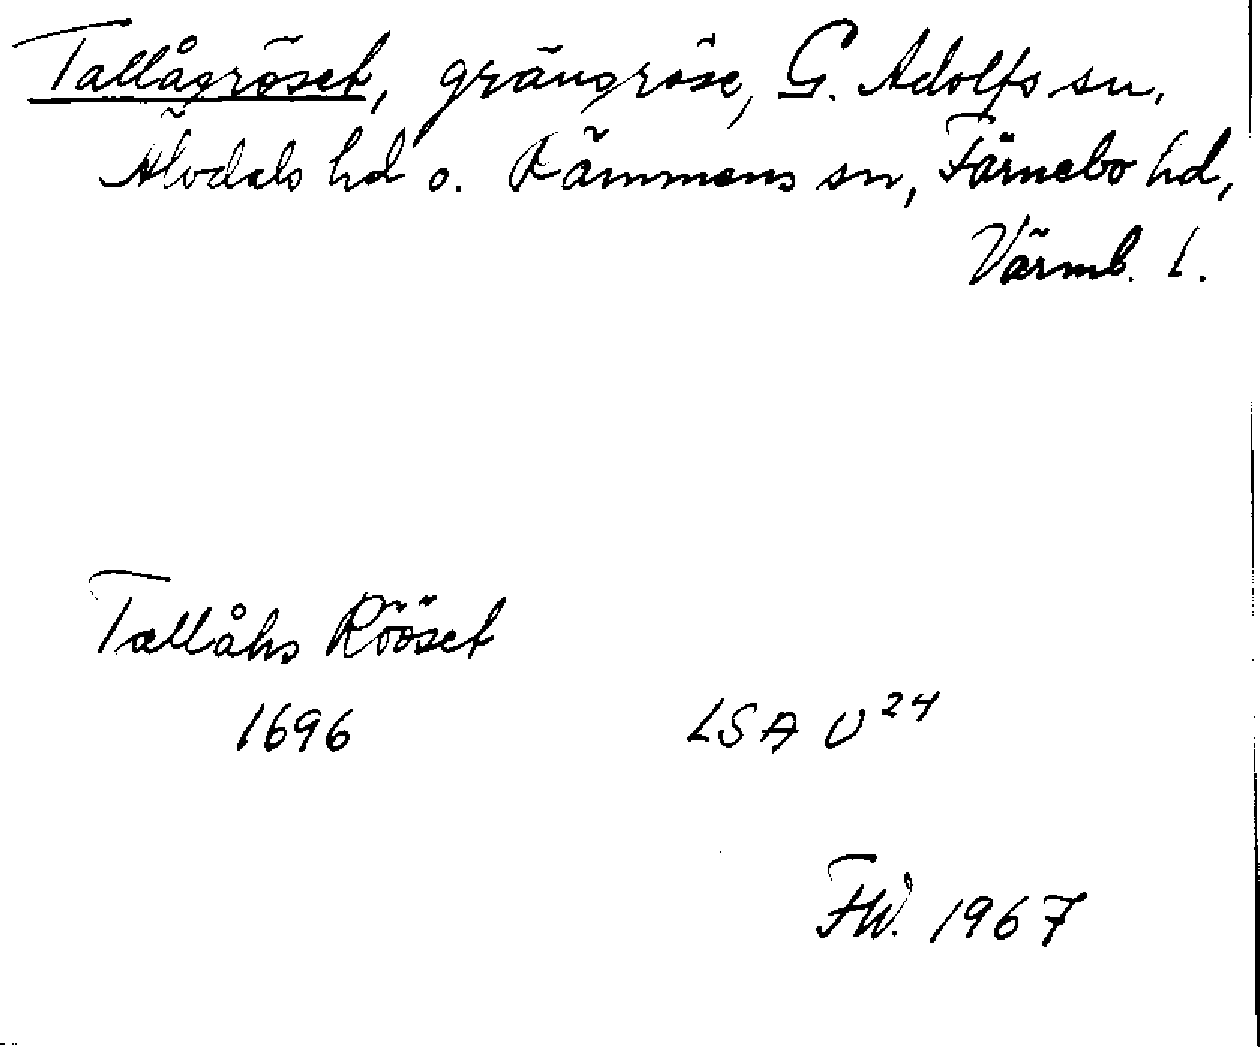 Tallågröset, gränsröse, G. Adolfs sn,
Älvdals hd o. Rämmens sn, Färnebo hd,
Värml. l.
Tallåhs Rööset
1696 LSA U 24
FW. 1967